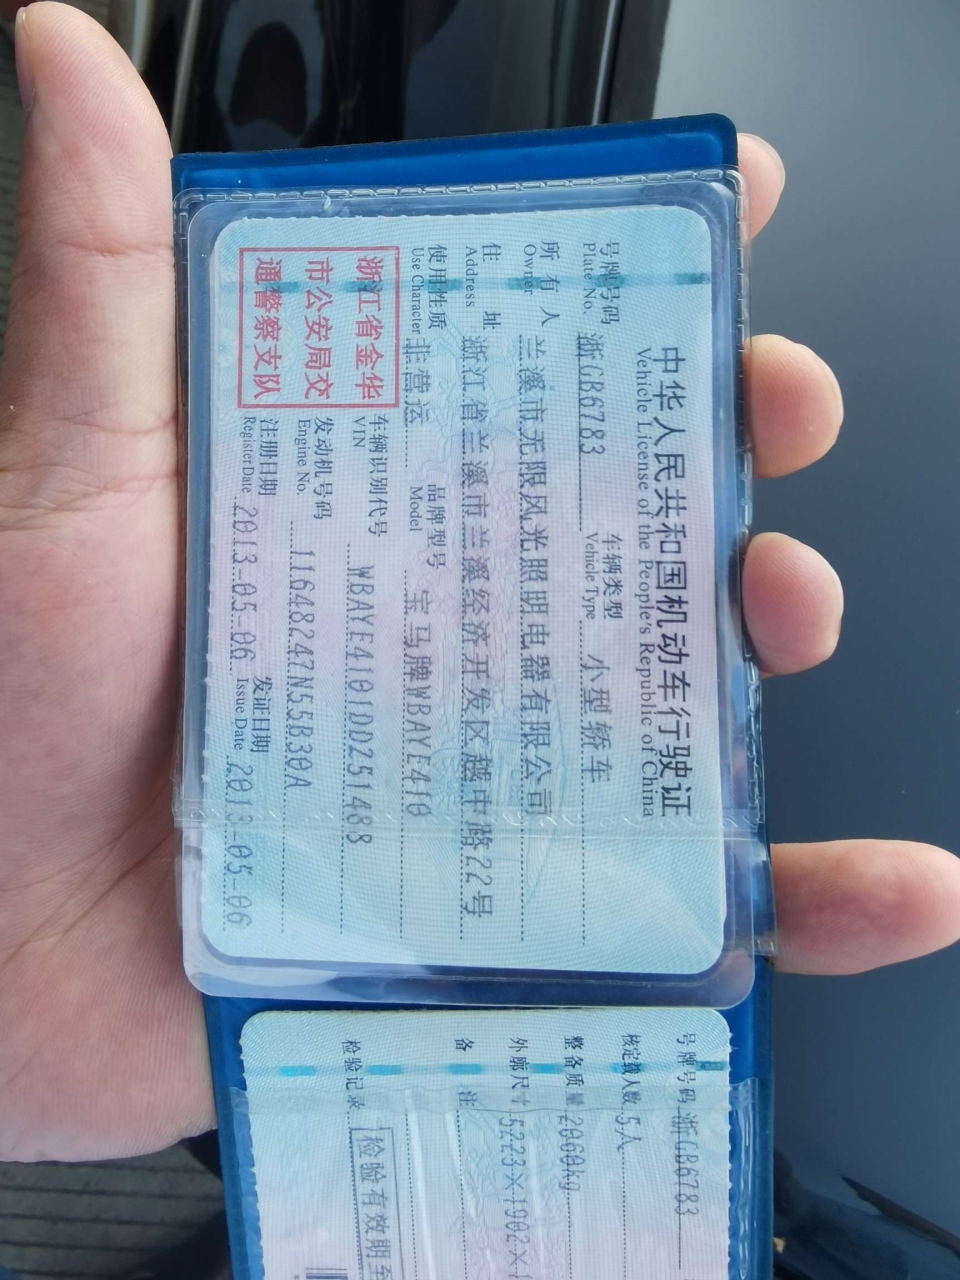 中华人民共和国机动车行驶证
Vehicle License of the People's Republic of China
号牌号码 浙GB6783 车辆类型 小型轿车
Plate No. Vehicle Type
所有人 兰溪市无限风光照明电器有限公司
Owner
住址 浙江省兰溪市兰溪经济开发区越中路22号
Address
使用性质 非营运 品牌型号 宝马牌WBAYE410
Use Character Model
浙江省金华
市公安局交
通警察支队
车辆识别代号 WBAYE4101DD251488
VIN
发动机号码 11648247N55B30A
Engine No.
注册日期 2013-05-06 发证日期 2013-05-06
Register Date Issue Date
号牌号码 浙GB6783
核定载人数 5人
整备质量 2060kg
外廓尺寸 5223×1902×1
备注
检验记录
检验有效期至